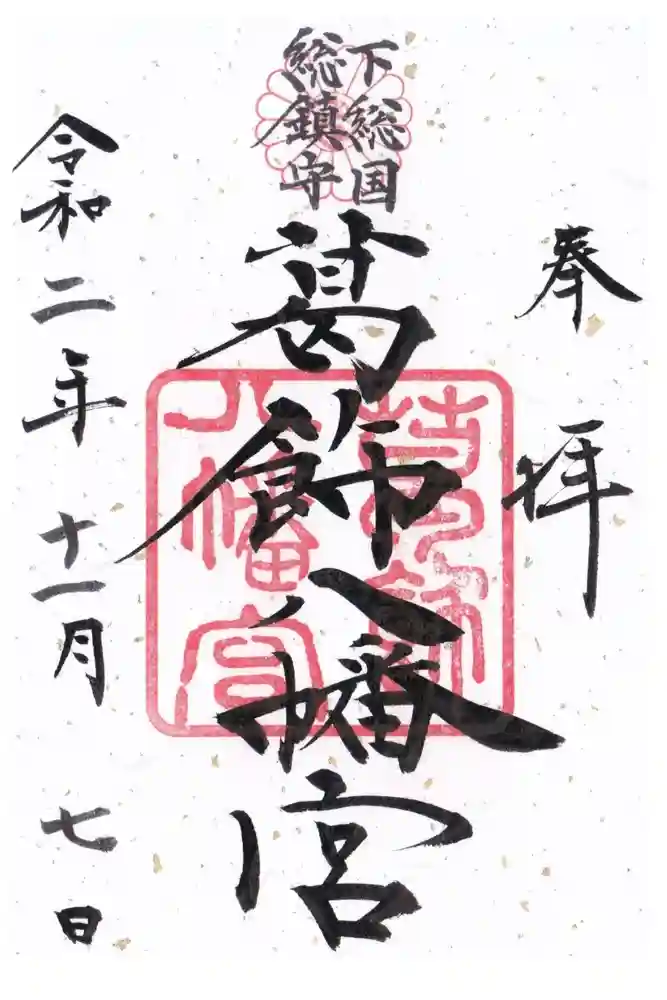 奉拝
下総国
総鎮守
葛飾八幡宮
葛飾
八幡宮
令和二年十一月七日